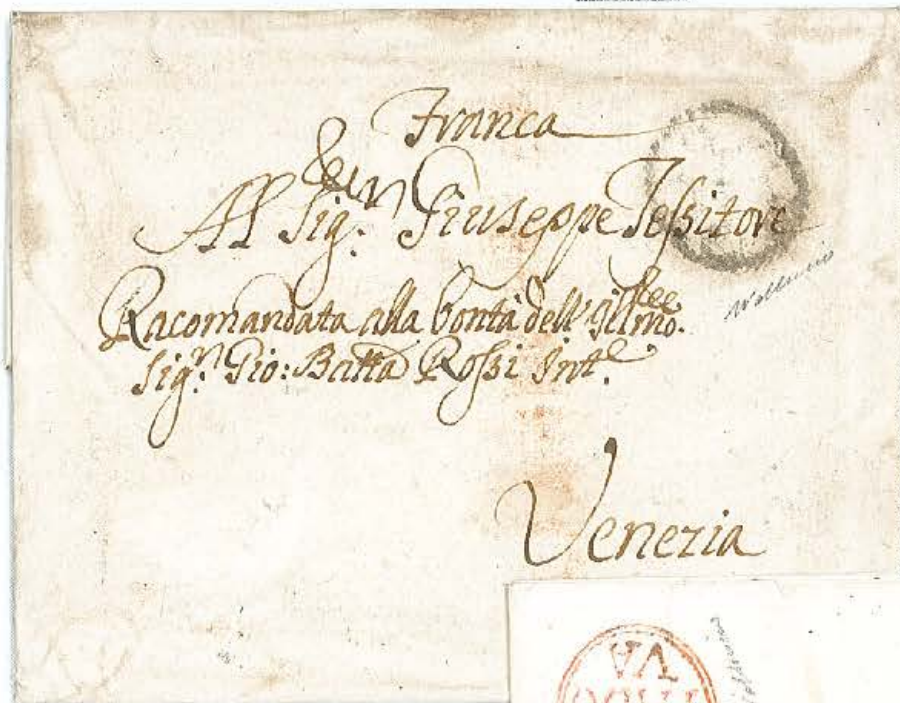 Franca
Al Sig.n Giuseppe Tessitore
Racomandata alla bontà dell' Illmo.
Sig.n Gio: Batta Rossi Int.e
Venezia
VA